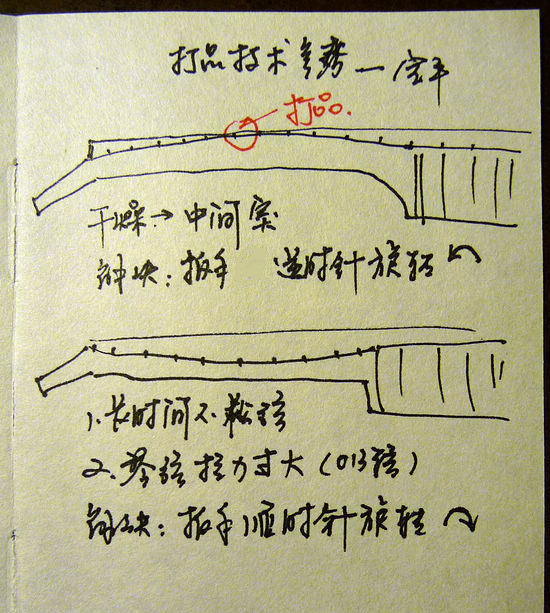 打品技术参考一宝丰
打品.
干燥→中间突
解决：扳手 逆时针旋转
1.长时间不松弦
2.琴弦拉力过大（013弦）
解决：扳手顺时针旋转